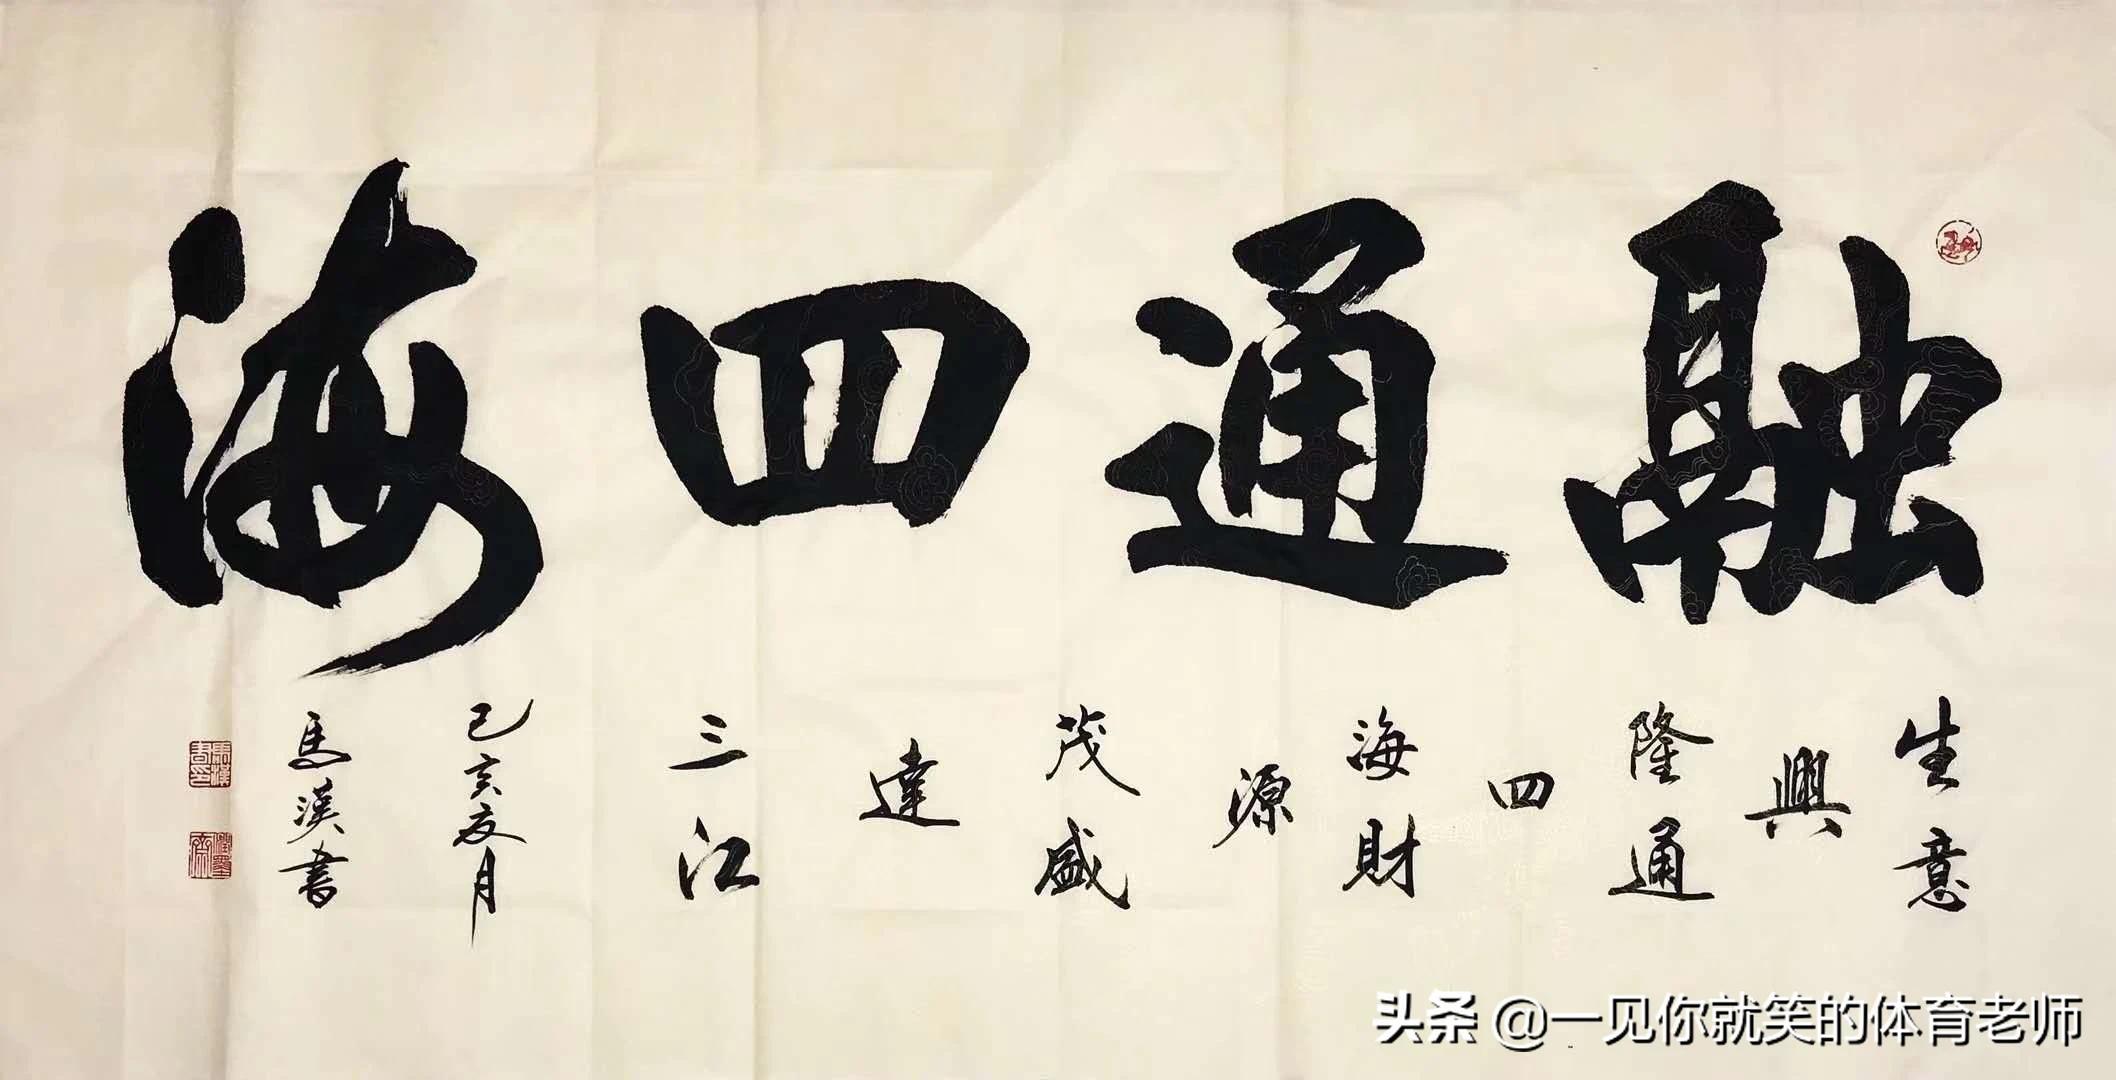 融通四海
生意
興
隆通
四
海財
源
茂盛
達
三江
己亥夏月
馬漢書
头条 @一见你就笑的体育老师